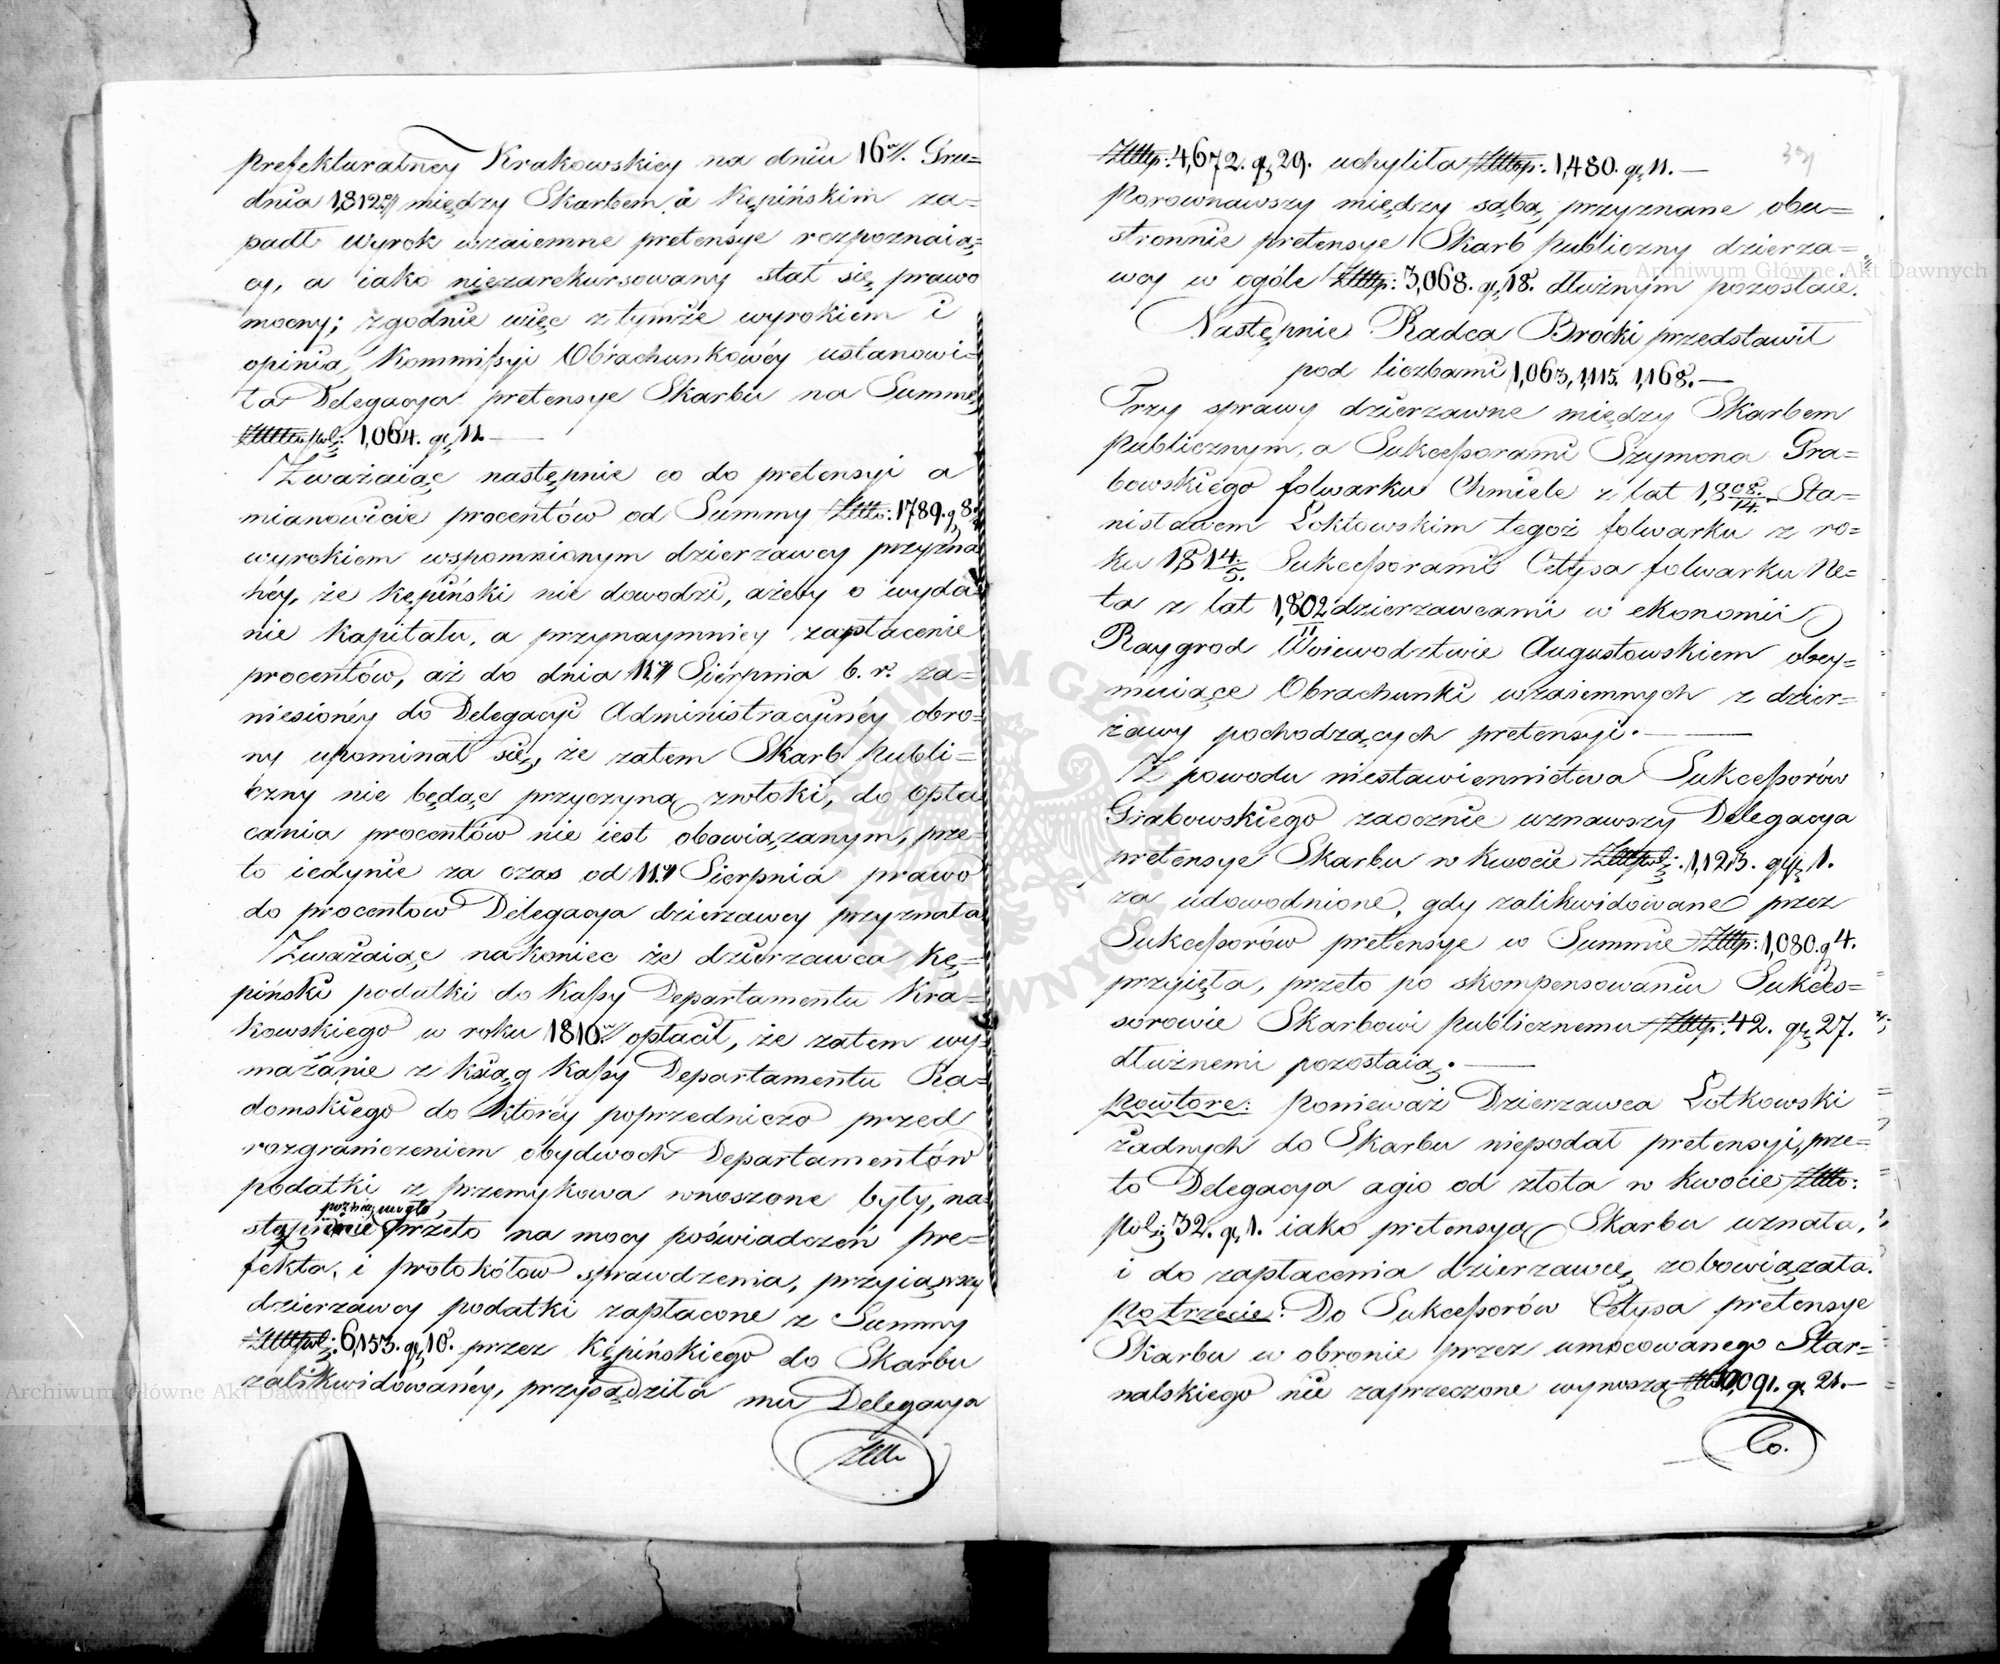 prefekturalney Krakowskiey na dniu 16go/. Gru=
dnia 1,812go/ między Skarbem, a Kępińskim za=
padł Wyrok wzaiemne pretensye rozpoznaią=
cy, a iako niezarekursowany stał się prawo
mocny; zgodnie więc z tymże wyrokiem i
opinią Kommissyi Obrachunkowéy ustanowi=
ła Delegacya pretensye Skarbu na Summę
pol: 1,064. gr, 11. —
Zważaiąc następnie co do pretensyi a
mianowicie procentów od Summy Złło: 1789. g, 8.
wyrokiem wspomnionym dzierzawcy przyzna
néy, że Kępiński nie dowodzi, ażeby o wyda=
nie kapitału, a przynaymniey zapłacenie
procentów, aż do dnia 11.go Sierpnia b. r. za=
niesionéy do Delegacyi Administracyinéy obro=
ny upominał się, że zatem Skarb Publi=
czny nie będąc przyczyną zwłoki, do opła
cania procentów nie iest obowiązanym, prze=
to iedynie za czas od 11.go Sierpnia prawo
do procentow Delegacya dzierzawcy przyznała
Zważaiąc nakoniec że dzierzawca Kę=
piński podatki do Kassy Departamentu Kra=
kowskiego w roku 1810.go/ opłacił, że zatem wy=
mazanie z ksiąg Kassy Departamentu Ra=
domskiego do którey poprzedniczo przed
rozgraniczeniem obydwoch Departamentów
podatki z Przemykowa wnoszone były, na=
pozniey mogło,
stąpienie przeto na mocy poświadczeń Pre=
fekta, i protokółow sprawdzenia, przyiąwszy
dzierzawcy podatki zapłacone z Summy
Złłpol: 6,153. gr, 10. przez Kępińskiego do Skarbu
zalikwidowanéy, przysądziła mu Delegacya
Złł.
Złłp: 4,672. g, 29. uchyliła Złłp: 1,480. gr, 11. —
Porownawszy między sobą przyznane obu=
stronnie pretensye Skarb Publiczny dzierza=
wcy w ogóle Złłp: 3,068. gr, 18. dłużnym pozostaie.
Następnie Radca Brocki przedstawił
pod liczbami 1,063, 1,115. 1,168. —
Trzy sprawy dzierzawne między Skarbem
Publicznym, a Sukcessorami Szymona Gra=
bowskiego folwarku Chmiele z lat 1,808./14. Sta=
nisławem Łoktowskim tegoż folwarku z ro=
ku 1814/5. Sukcessorami Cetysa folwarku Ne=
ta z lat 1,802/11 dzierzawcami w ekonomii
Raygrod Woiewodztwie Augustowskiem obey=
muiące Obrachunki wzaiemnych z dzier=
żawy pochodzących pretensyi. —
Z powodu niestawiennictwa Sukcessorów
Grabowskiego zaocznie uznawszy Delegacya
pretensye Skarbu w kwocie Złłpol: 1,123. gr, 1.
za udowodnione, gdy zalikwidowane przez
Sukcessorów pretensye w Summie Złłp: 1,080. g 4.
przyięta, przeto po skompensowaniu Sukces=
sorowie Skarbowi Publicznemu Złłp: 42. gr, 27.
dłużnemi pozostaią. —
Powtore: Ponieważ Dzierzawca Łotkowski
żadnych do Skarbu niepodał pretensyi, prze=
to Delegacya agio od złota w kwocie Złło:
Pol: 32. gr, 1. iako pretensyą Skarbu uznała,
i do zapłacenia dzierzawcę zobowiązała.
Po trzecie: Do Sukcessorów Cetysa pretensye
Skarbu w obronie przez umocowanego Star=
nalskiego nie zaprzeczone wynoszą gr, 21. —
Co.
Archiwum Główne Akt Dawnych
Archiwum Główne Akt Dawnych